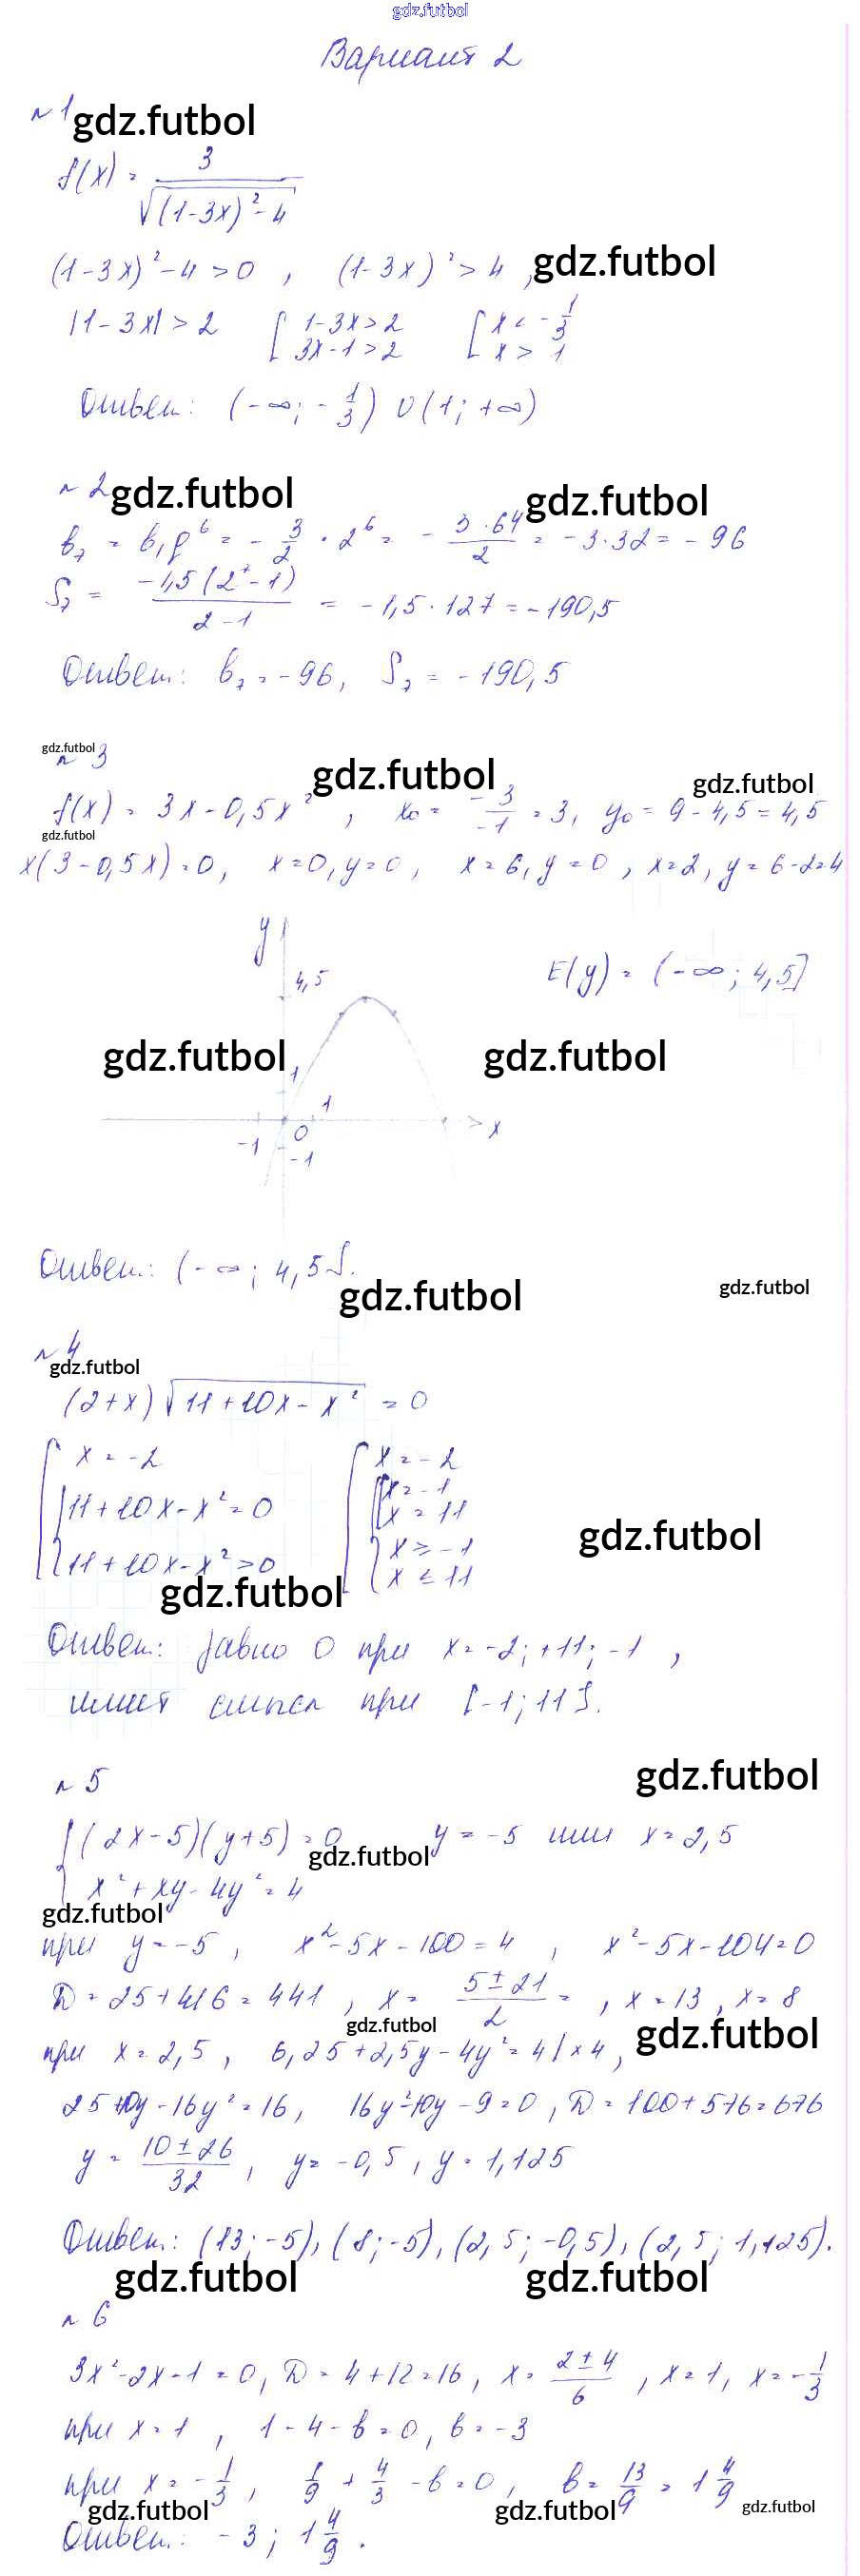 gdz.futbol
Вариант 2
№ 1 gdz.futbol
f(x) = 3 / √((1-3x)² - 4)
(1-3x)² - 4 > 0 , (1-3x)² > 4 , gdz.futbol
|1-3x| > 2 [ 1-3x > 2 [ x < -1/3
3x-1 > 2 x > 1
Ответ: (-∞; -1/3) ∪ (1; +∞)
№ 2 gdz.futbol gdz.futbol
b₇ = b₁q⁶ = -3/2 · 2⁶ = - 3·64/2 = -3·32 = -96
S₇ = -1,5(2⁷-1) / 2-1 = -1,5·127 = -190,5
Ответ: b₇ = -96, S₇ = -190,5
gdz.futbol
№ 3 gdz.futbol gdz.futbol
f(x) = 3x - 0,5x² , x₀ = -3/-1 = 3, y₀ = 9 - 4,5 = 4,5
gdz.futbol
x(3-0,5x) = 0, x=0, y=0, x=6, y=0, x=2, y=6-2=4
y
4,5 E(y) = (-∞; 4,5]
gdz.futbol 1 gdz.futbol
1
-1 0 x
-1
Ответ: (-∞; 4,5].
gdz.futbol gdz.futbol
№ 4
gdz.futbol
(2+x)√(11+10x-x²) = 0
[ x = -2 [ x = -2
{ 11+10x-x² = 0 { [ x = -1
x = 11
gdz.futbol
11+10x-x² > 0 { x ≥ -1
x ≤ 11
gdz.futbol
Ответ: равно 0 при x = -2; +11; -1 ,
имеет смысл при [-1; 11].
№ 5 gdz.futbol
{ (2x-5)(y+5) = 0 y = -5 или x = 2,5
gdz.futbol
x² + xy - 4y² = 4
gdz.futbol
при y = -5 , x² - 5x - 100 = 4 , x² - 5x - 104 = 0
D = 25 + 416 = 441 , x = 5±21/2 = , x = 13 , x = 8
gdz.futbol gdz.futbol
при x = 2,5 , 6,25 + 2,5y - 4y² = 4 | × 4 ,
25 + 10y - 16y² = 16, 16y² - 10y - 9 = 0, D = 100 + 576 = 676
y = 10±26/32 , y = -0,5 , y = 1,125
Ответ: (13; -5), (8; -5), (2,5; -0,5), (2,5; 1,125).
gdz.futbol gdz.futbol
№ 6
3x² - 2x - 1 = 0, D = 4 + 12 = 16, x = 2±4/6 , x = 1, x = -1/3
при x = 1 , 1 - 4 - b = 0, b = -3
при x = -1/3 , 1/9 + 4/3 - b = 0 , b = 13/9 = 1 4/9
gdz.futbol gdz.futbol gdz.futbol
Ответ: -3; 1 4/9 .